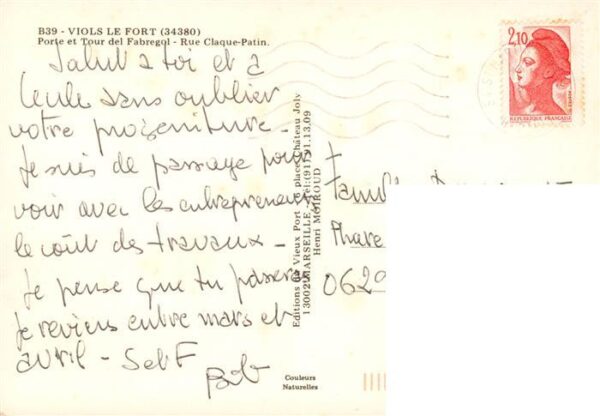 B39 - VIOLS LE FORT (34380)
Porte et Tour del Fabregol - Rue Claque-Patin.
Salut à toi et à
sans oublier
votre progéniture -
Je suis de passage pour
voir avec les entrepreneurs
le coût des travaux -
Je pense que tu passeras
Je reviens entre mars et
avril -
Bob
Editions du Vieux Port place Château Joly
13002 MARSEILLE Tél: (91) 91.13.09
Henri MOIROUD
2,10
REPUBLIQUE FRANÇAISE
Phare
0629
Couleurs
Naturelles